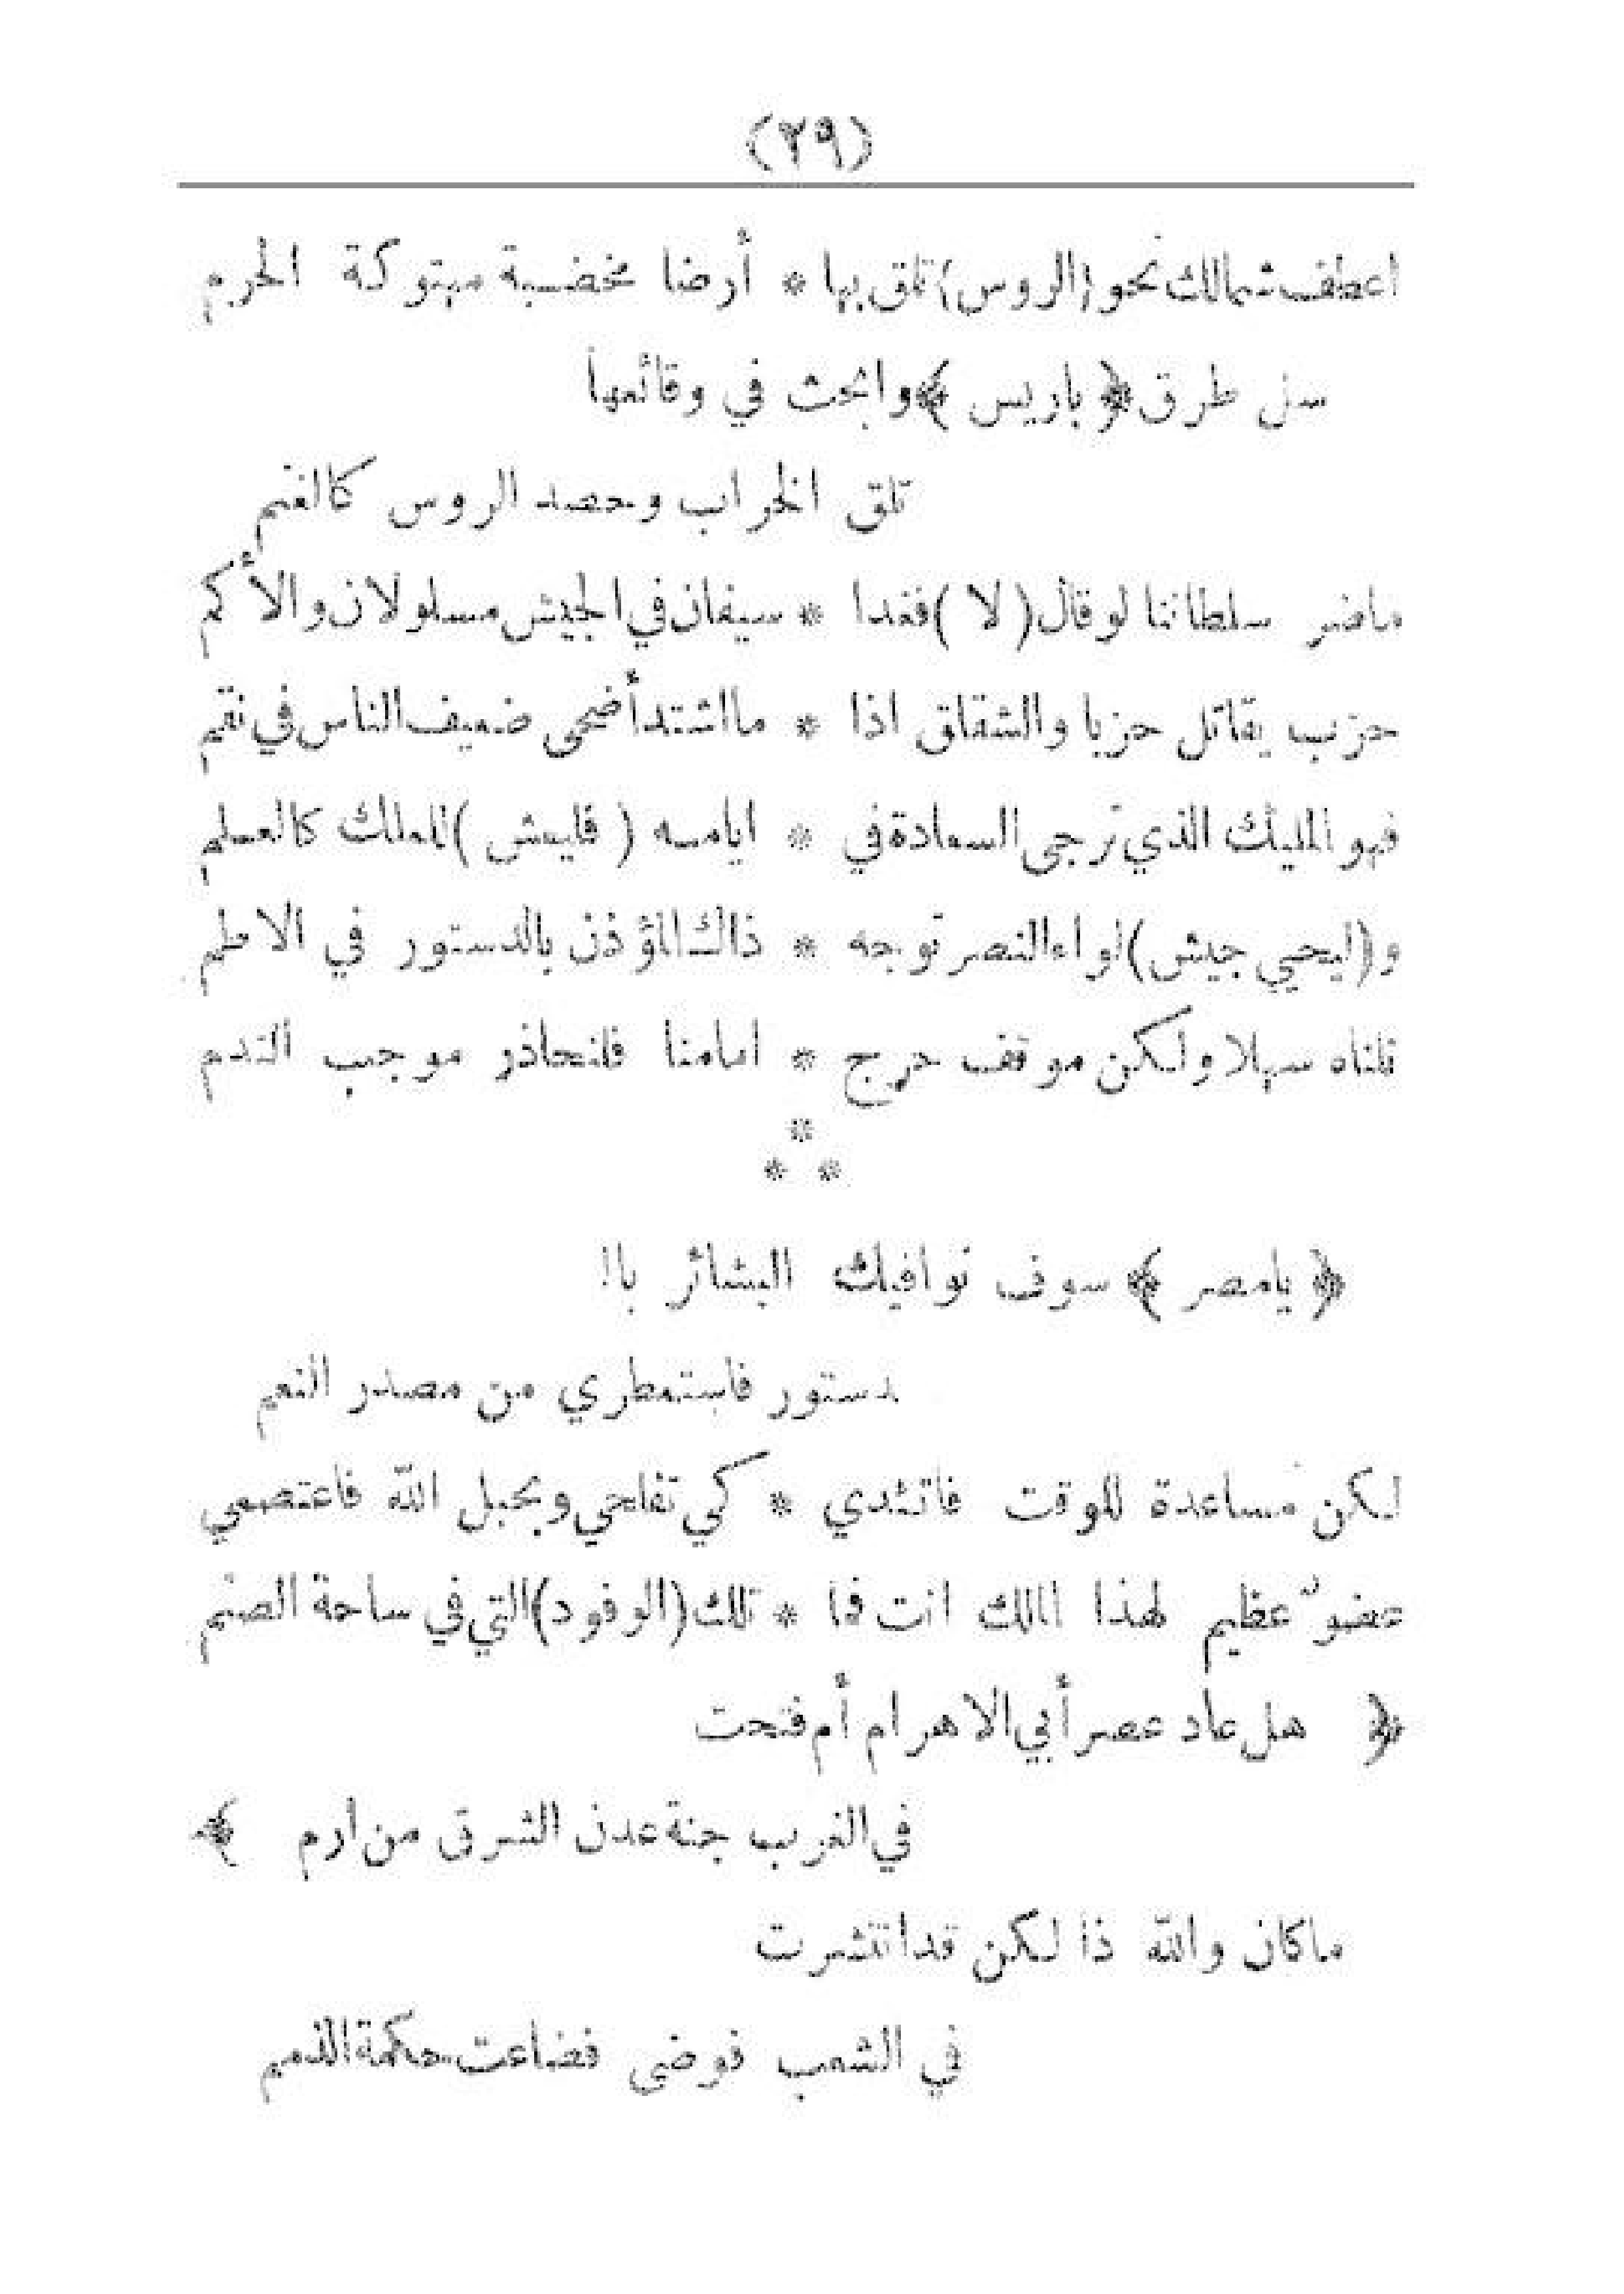 (٢٩)
اعطف شمالك نحو (الروس) تلق بها * أرضا مخضبة مهتوكة الحرم
سل طرق ﴿ باريس ﴾ وابحث في وقائعها
تلق الخراب وحصد الروس كالغنم
ماضر سلطاننا لو قال ( لا ) فغدا * سيفان في الجيش مسلولان والأكم
حزب يقاتل حزبا والشقاق اذا * ما اشتد أضحى ضعيف الناس في نقم
فهو المليك الذي ترجى السعادة في * ايامه ( فليعش ) للملك كالعلم
و(ليحيى جيش) لواء النصر توجه * ذاك المؤذن بالدستور في الاطم
نلناه سهلا ولكن موقف حرج * امامنا فلنحاذر موجب الندم
*
* *
﴿ يامصر ﴾ سوف توافيك البشائر بال
دستور فاستمطري من مصدر النعم
لكن مساعدة للوقت فاتئدي * كي تفلحي وبحبل الله فاعتصمي
عضوٌ عظيم لهذا الملك انت فما * تلك (الوفود) التي في ساحة الصنم
﴿ هل عاد عصر أبي الاهرام أم فتحت
في الغرب جنة عدن الشرق من ارم ﴾
ماكان والله ذا لكن قد انتشرت
في الشعب فوضى فضاعت حكمة الذمم